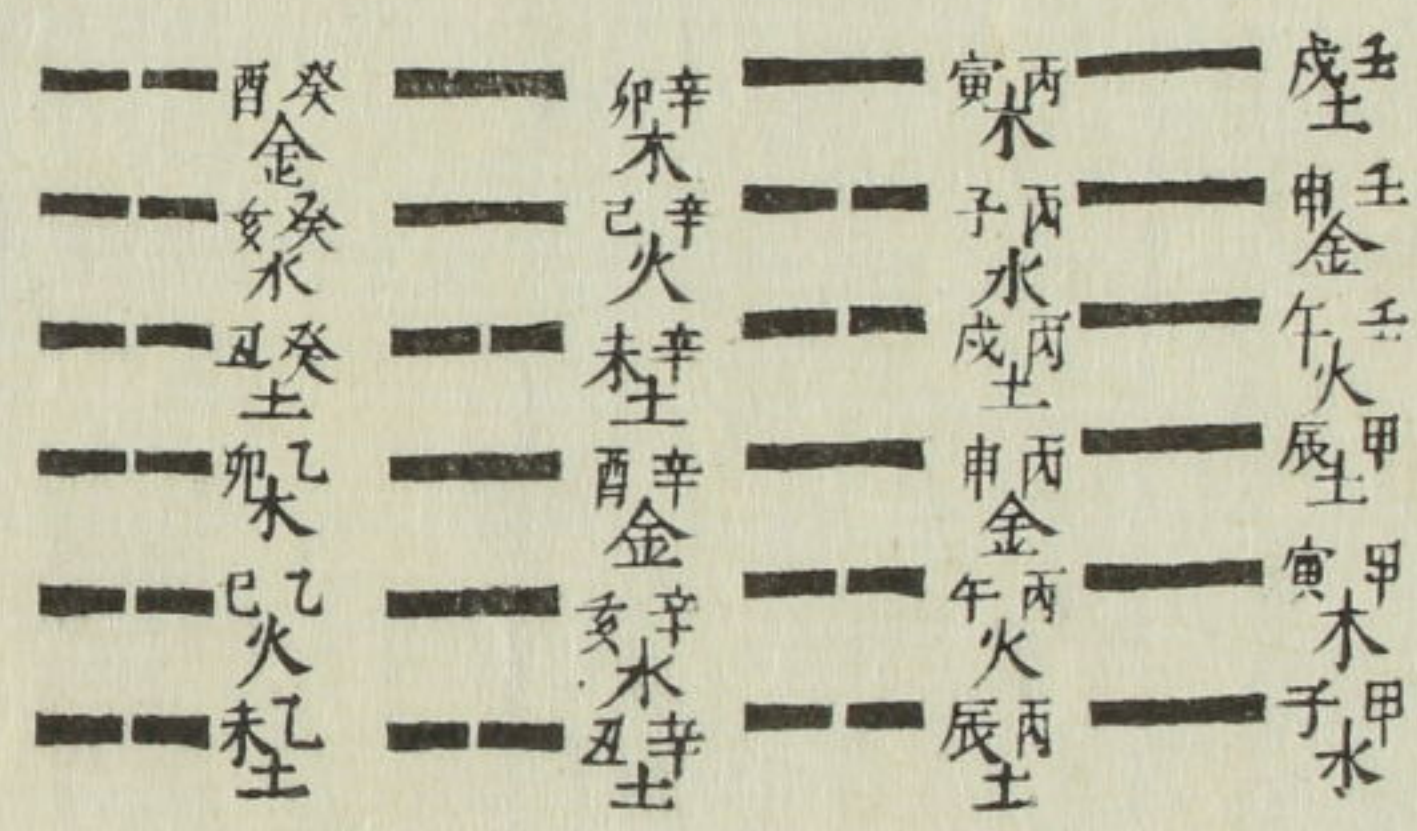 壬戌土
壬申金
壬午火
甲辰土
甲寅木
甲子水
丙寅木
丙子水
丙戌土
丙申金
丙午火
丙辰土
辛卯木
辛己火
辛未土
辛酉金
辛亥水
辛丑土
癸酉金
癸亥水
癸丑土
乙卯木
乙巳火
乙未土